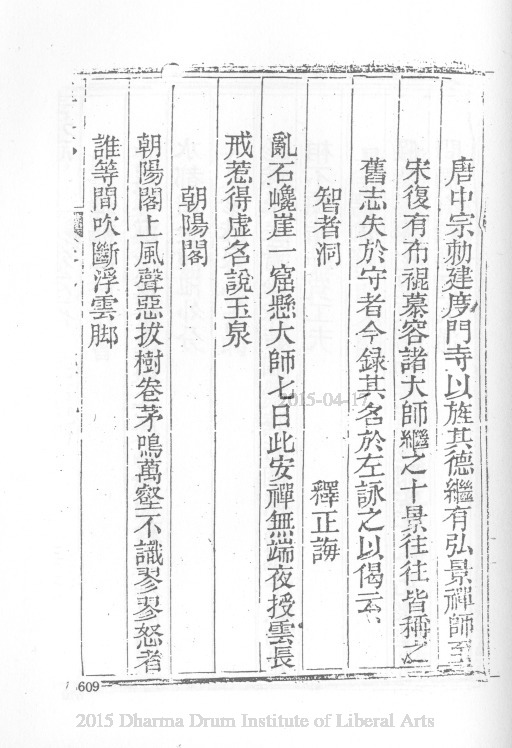 唐中宗勅建度門寺以旌其德繼有弘景禪師至
宋復有布裩慕容諸大師繼之十景往往皆稱之
舊志失於守者今録其名於左詠之以偈云
智者洞　釋正誨
亂石巉崖一窟懸大師七日此安禪無端夜授雲長
戒惹得虛名說玉泉
朝陽閣
朝陽閣上風聲惡拔樹卷茅鳴萬壑不識翏翏怒者
誰等閒吹斷浮雲脚
609
2015-04-17
2015 Dharma Drum Institute of Liberal Arts